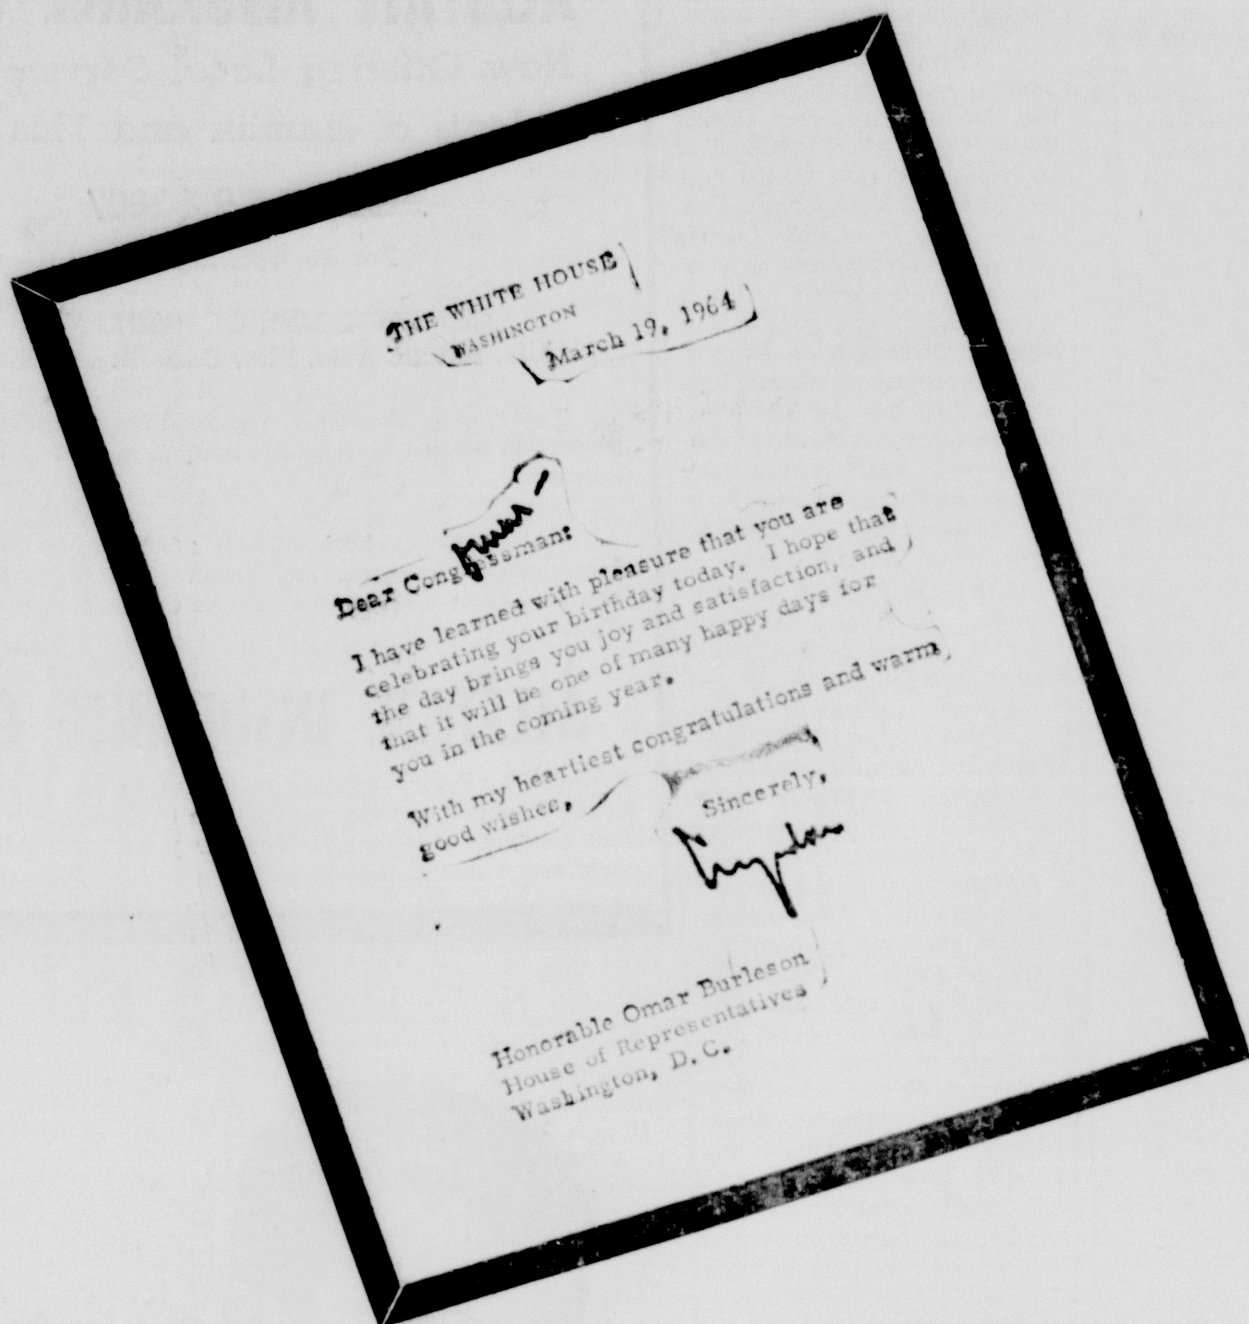 THE WHITE HOUSE
WASHINGTON
March 19, 1964
Omar –
Dear Congressman:
I have learned with pleasure that you are
celebrating your birthday today. I hope that
the day brings you joy and satisfaction, and
that it will be one of many happy days for
you in the coming year.
With my heartiest congratulations and warm
good wishes,
Sincerely,
Lyndon
Honorable Omar Burleson
House of Representatives
Washington, D. C.